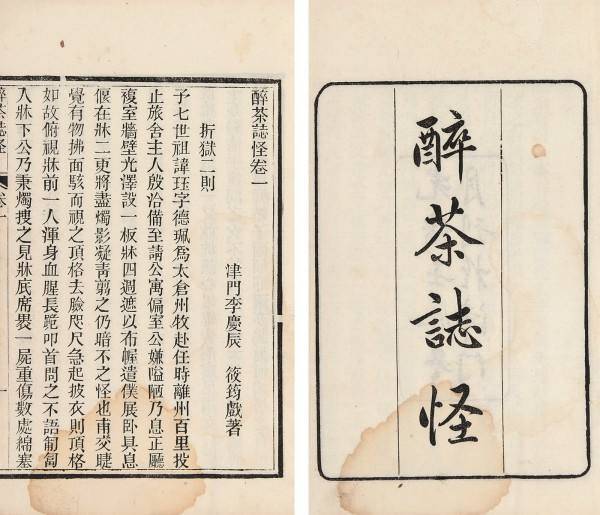 醉茶誌怪
醉茶誌怪卷一
津門李慶辰 筱筠戲著
折獄二則
予七世祖諱珏字德珮爲太倉州牧赴任時離州百里投
止旅舍主人殷洽備至請公寓偏室公嫌嗌陋乃息正廳
複室牆壁光澤設一板牀四週遮以布幄遣僕展卧具息
偃在牀二更將盡燭影凝青剪之仍暗不之怪也甫交睫
覺有物拂面駭而視之頂格去臉咫尺急起披衣則頂格
如故俯視牀前一人渾身血腥長跪叩首問之不語匍匐
入牀下公乃秉燭搜之見牀底席褁一屍重傷數處綿塞
醉茶誌怪 卷一 一